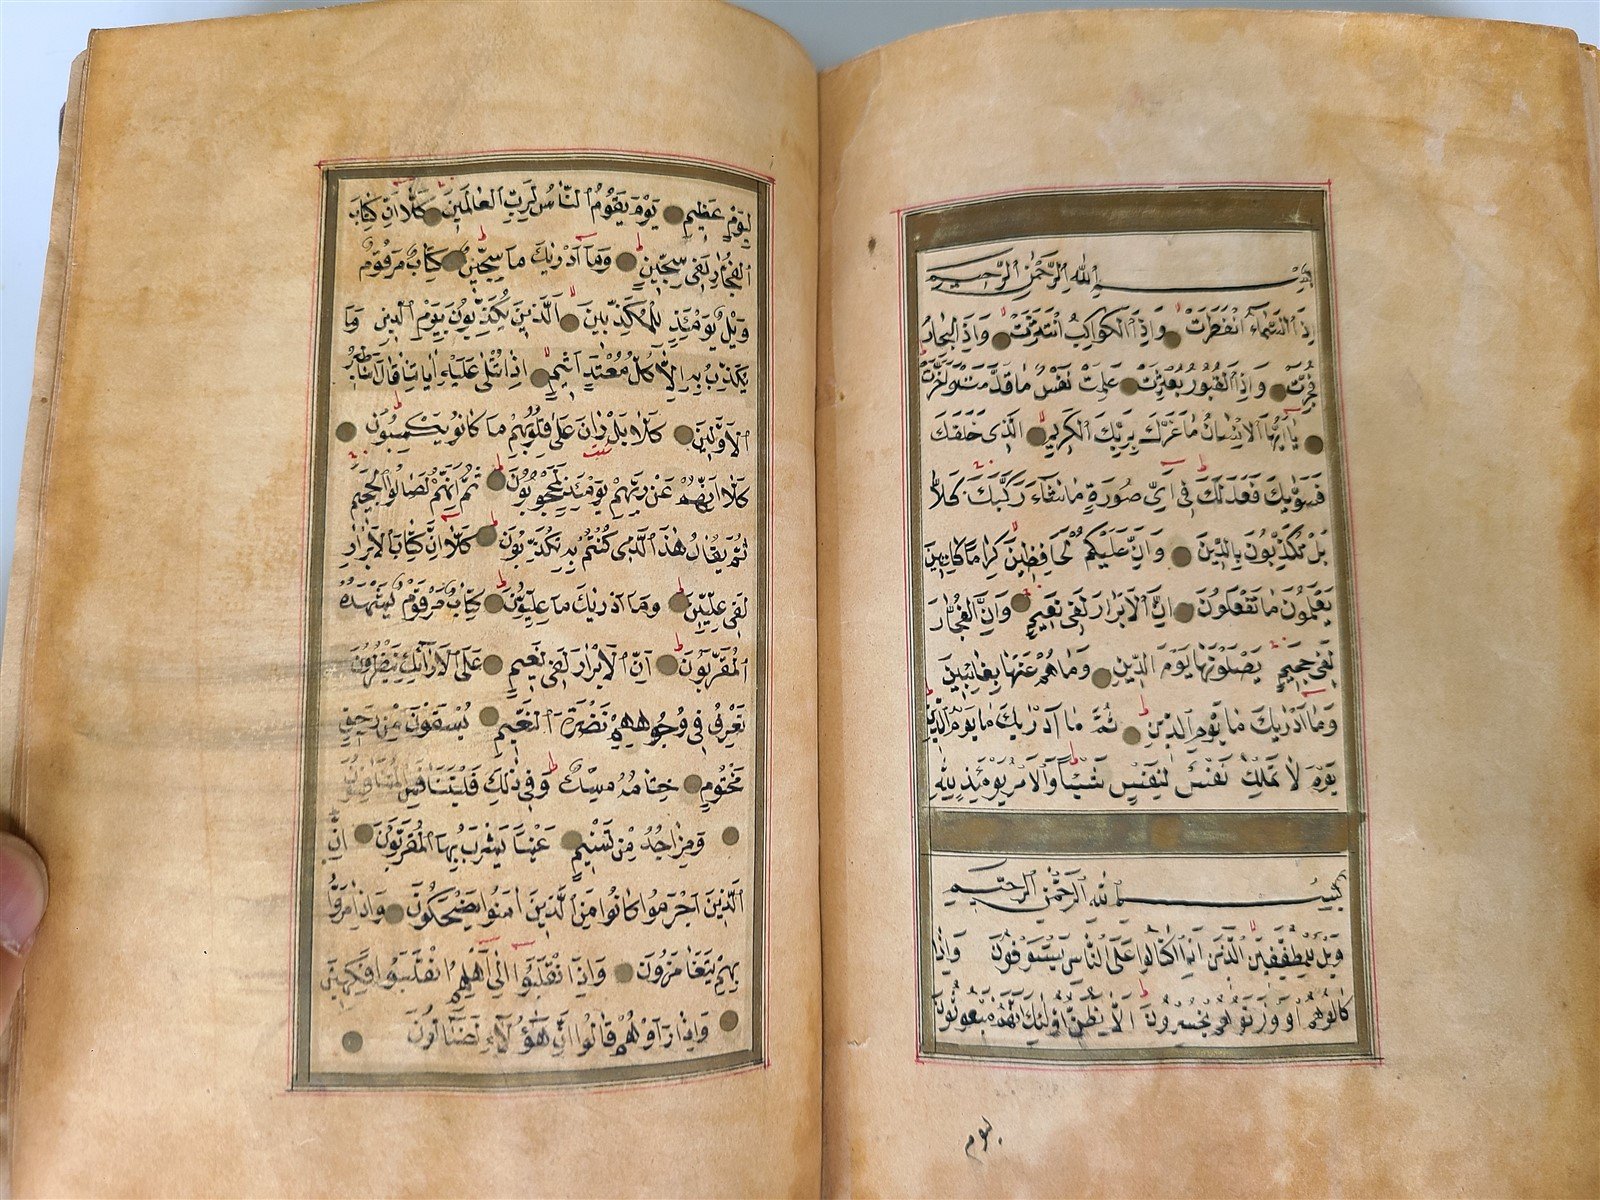 بِسْمِ اللهِ الرَّحْمٰنِ الرَّحِيمِ
اِذَا السَّمَاءُ انْفَطَرَتْ وَاِذَا الْكَوَاكِبُ انْتَثَرَتْ وَاِذَا الْبِحَارُ
فُجِّرَتْ وَاِذَا الْقُبُورُ بُعْثِرَتْ عَلِمَتْ نَفْسٌ مَا قَدَّمَتْ وَاَخَّرَتْ
يَا اَيُّهَا الْاِنْسَانُ مَا غَرَّكَ بِرَبِّكَ الْكَرِيمِ الَّذِى خَلَقَكَ
فَسَوّٰيكَ فَعَدَلَكَ فِى اَىِّ صُورَةٍ مَا شَاءَ رَكَّبَكَ كَلَّا
بَلْ تُكَذِّبُونَ بِالدِّينِ وَاِنَّ عَلَيْكُمْ لَحَافِظِينَ كِرَامًا كَاتِبِينَ
يَعْلَمُونَ مَا تَفْعَلُونَ اِنَّ الْاَبْرَارَ لَفِى نَعِيمٍ وَاِنَّ الْفُجَّارَ
لَفِى جَحِيمٍ يَصْلَوْنَهَا يَوْمَ الدِّينِ وَمَا هُمْ عَنْهَا بِغَائِبِينَ
وَمَا اَدْرٰيكَ مَا يَوْمُ الدِّينِ ثُمَّ مَا اَدْرٰيكَ مَا يَوْمُ الدِّينِ
يَوْمَ لَا تَمْلِكُ نَفْسٌ لِنَفْسٍ شَيْئًا وَالْاَمْرُ يَوْمَئِذٍ لِلّٰهِ
بِسْمِ اللهِ الرَّحْمٰنِ الرَّحِيمِ
وَيْلٌ لِلْمُطَفِّفِينَ الَّذِينَ اِذَا اكْتَالُوا عَلَى النَّاسِ يَسْتَوْفُونَ وَاِذَا
كَالُوهُمْ اَوْ وَزَنُوهُمْ يُخْسِرُونَ اَلَا يَظُنُّ اُولٰئِكَ اَنَّهُمْ مَبْعُوثُونَ
ليوم
لِيَوْمٍ عَظِيمٍ يَوْمَ يَقُومُ النَّاسُ لِرَبِّ الْعَالَمِينَ كَلَّا اِنَّ كِتَابَ
الْفُجَّارِ لَفِى سِجِّينٍ وَمَا اَدْرٰيكَ مَا سِجِّينٌ كِتَابٌ مَرْقُومٌ
وَيْلٌ يَوْمَئِذٍ لِلْمُكَذِّبِينَ الَّذِينَ يُكَذِّبُونَ بِيَوْمِ الدِّينِ وَمَا
يُكَذِّبُ بِهِ اِلَّا كُلُّ مُعْتَدٍ اَثِيمٍ اِذَا تُتْلٰى عَلَيْهِ اٰيَاتُنَا قَالَ اَسَاطِيرُ
الْاَوَّلِينَ كَلَّا بَلْ رَانَ عَلٰى قُلُوبِهِمْ مَا كَانُوا يَكْسِبُونَ
كَلَّا اِنَّهُمْ عَنْ رَبِّهِمْ يَوْمَئِذٍ لَمَحْجُوبُونَ ثُمَّ اِنَّهُمْ لَصَالُوا الْجَحِيمِ
ثُمَّ يُقَالُ هٰذَا الَّذِى كُنْتُمْ بِهِ تُكَذِّبُونَ كَلَّا اِنَّ كِتَابَ الْاَبْرَارِ
لَفِى عِلِّيِّينَ وَمَا اَدْرٰيكَ مَا عِلِّيُّونَ كِتَابٌ مَرْقُومٌ يَشْهَدُهُ
الْمُقَرَّبُونَ اِنَّ الْاَبْرَارَ لَفِى نَعِيمٍ عَلَى الْاَرَائِكِ يَنْظُرُونَ
تَعْرِفُ فِى وُجُوهِهِمْ نَضْرَةَ النَّعِيمِ يُسْقَوْنَ مِنْ رَحِيقٍ
مَخْتُومٍ خِتَامُهُ مِسْكٌ وَفِى ذٰلِكَ فَلْيَتَنَافَسِ الْمُتَنَافِسُونَ
وَمِزَاجُهُ مِنْ تَسْنِيمٍ عَيْنًا يَشْرَبُ بِهَا الْمُقَرَّبُونَ اِنَّ
الَّذِينَ اَجْرَمُوا كَانُوا مِنَ الَّذِينَ اٰمَنُوا يَضْحَكُونَ وَاِذَا مَرُّوا
بِهِمْ يَتَغَامَزُونَ وَاِذَا انْقَلَبُوا اِلٰى اَهْلِهِمُ انْقَلَبُوا فَكِهِينَ
وَاِذَا رَاَوْهُمْ قَالُوا اِنَّ هٰؤُلَاءِ لَضَالُّونَ